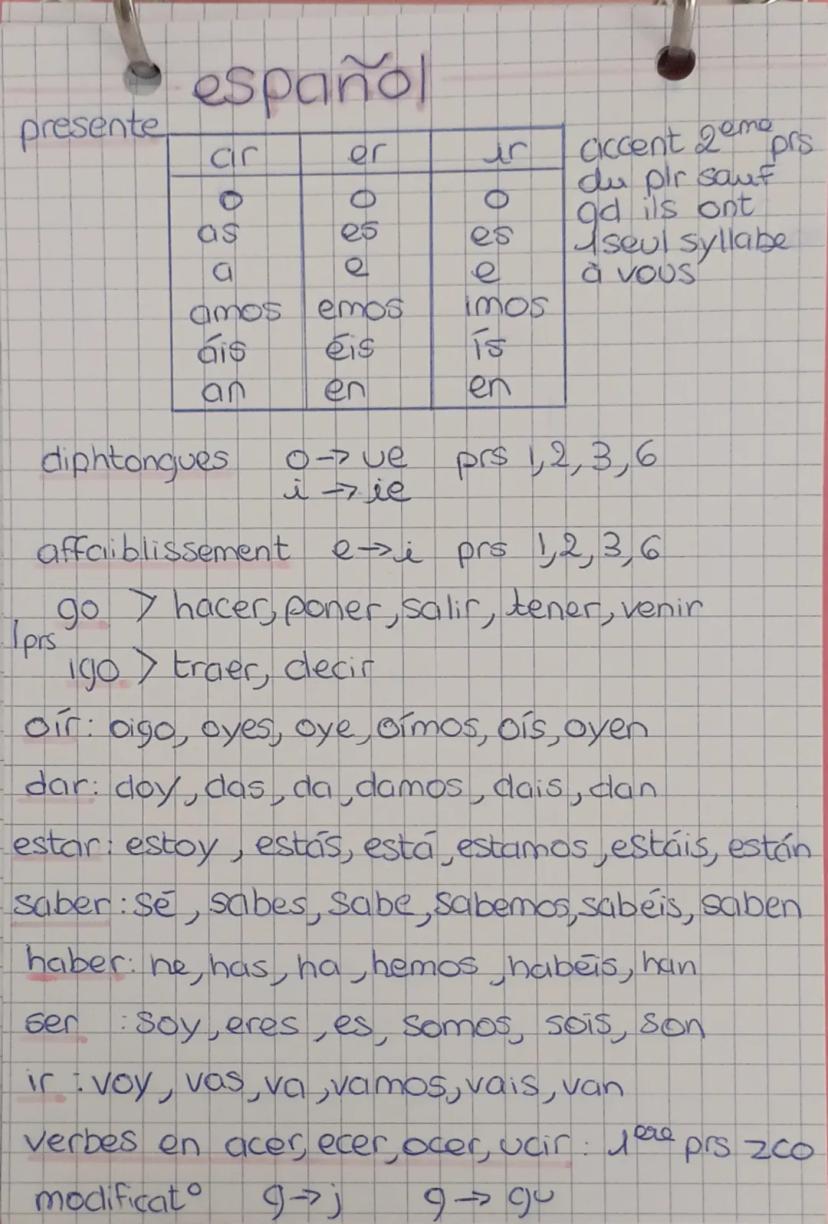 español
presente
ar er ir
o o o
as es es
a e e
amos emos imos
áis éis ís
an en en
accent 2ème prs
du plr sauf
qd ils ont
1 seul syllabe
à vous
diphtongues o → ue prs 1, 2, 3, 6
i → ie
affaiblissement e → i prs 1, 2, 3, 6
go > hacer, poner, salir, tener, venir
1prs
igo > traer, decir
oír: oigo, oyes, oye, oímos, oís, oyen
dar: doy, das, da, damos, dais, dan
estar: estoy, estás, está, estamos, estáis, están
saber: sé, sabes, sabe, sabemos, sabéis, saben
haber: he, has, ha, hemos, habéis, han
ser : soy, eres, es, somos, sois, son
ir : voy, vas, va, vamos, vais, van
verbes en acer, ecer, ocer, ucir : 1ère prs zco
modificat° g → j g → gu